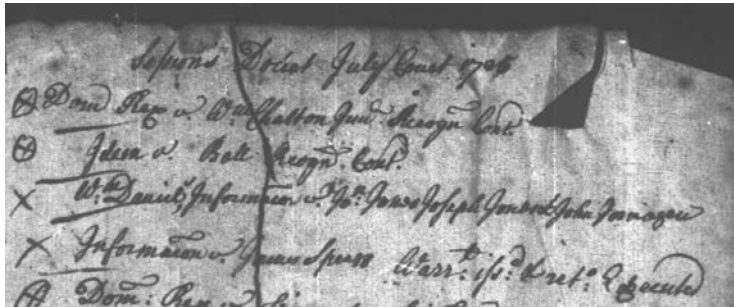 Sessions Docket July Court
Dom Rex v. Wm Chalton Junr Recogn Cont.
Idem v. Ball Recogn. Cont.
Wm Daniels, Information v. Jos. Jones Joseph Jones & John
Information v. James Spiers Warrt: issd & retd. Executed
Dom: Rex v.